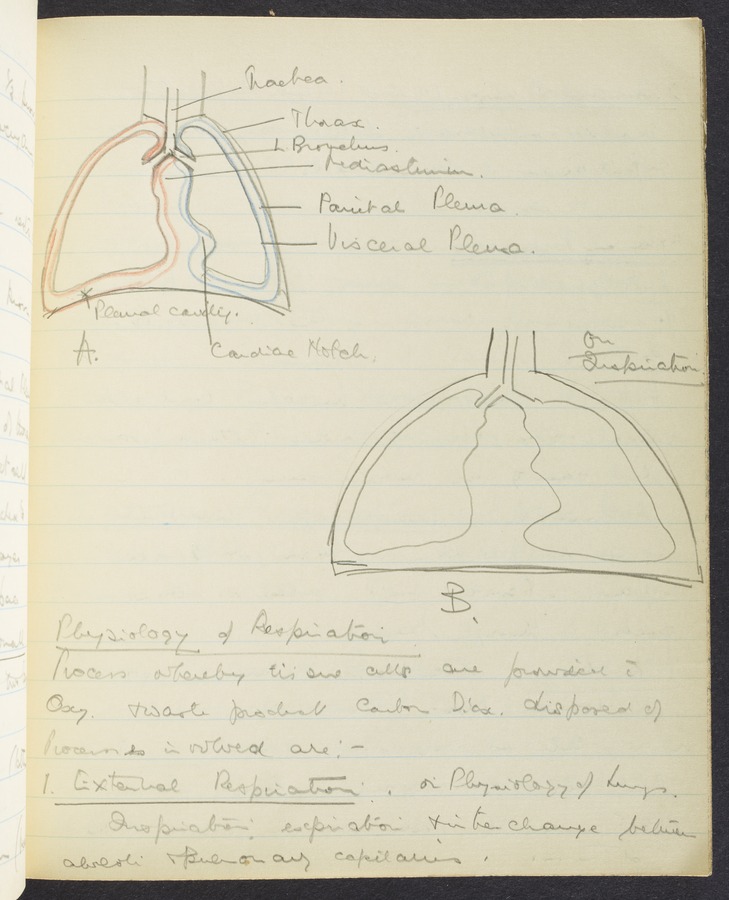 Trachea.
Thorax.
L Bronchus.
Mediastinum.
Parietal Pleura.
Visceral Pleura.
Pleural cavity.
A.
Cardiac Notch.
On
Inspiration
B.
Physiology of Respiration
Process whereby tissue cells are provided c̄
Oxy. & waste product Carbon Diox. disposed of
Processes involved are:-
1. External Respiration. or Physiology of Lungs.
Inspiration, expiration & interchange between
alveoli & Pulmonary capillaries.